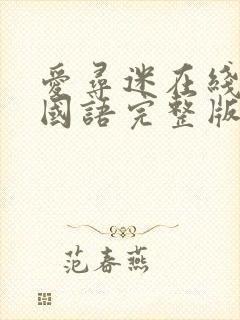 愛尋迷在綫
國語完整版
范春燕